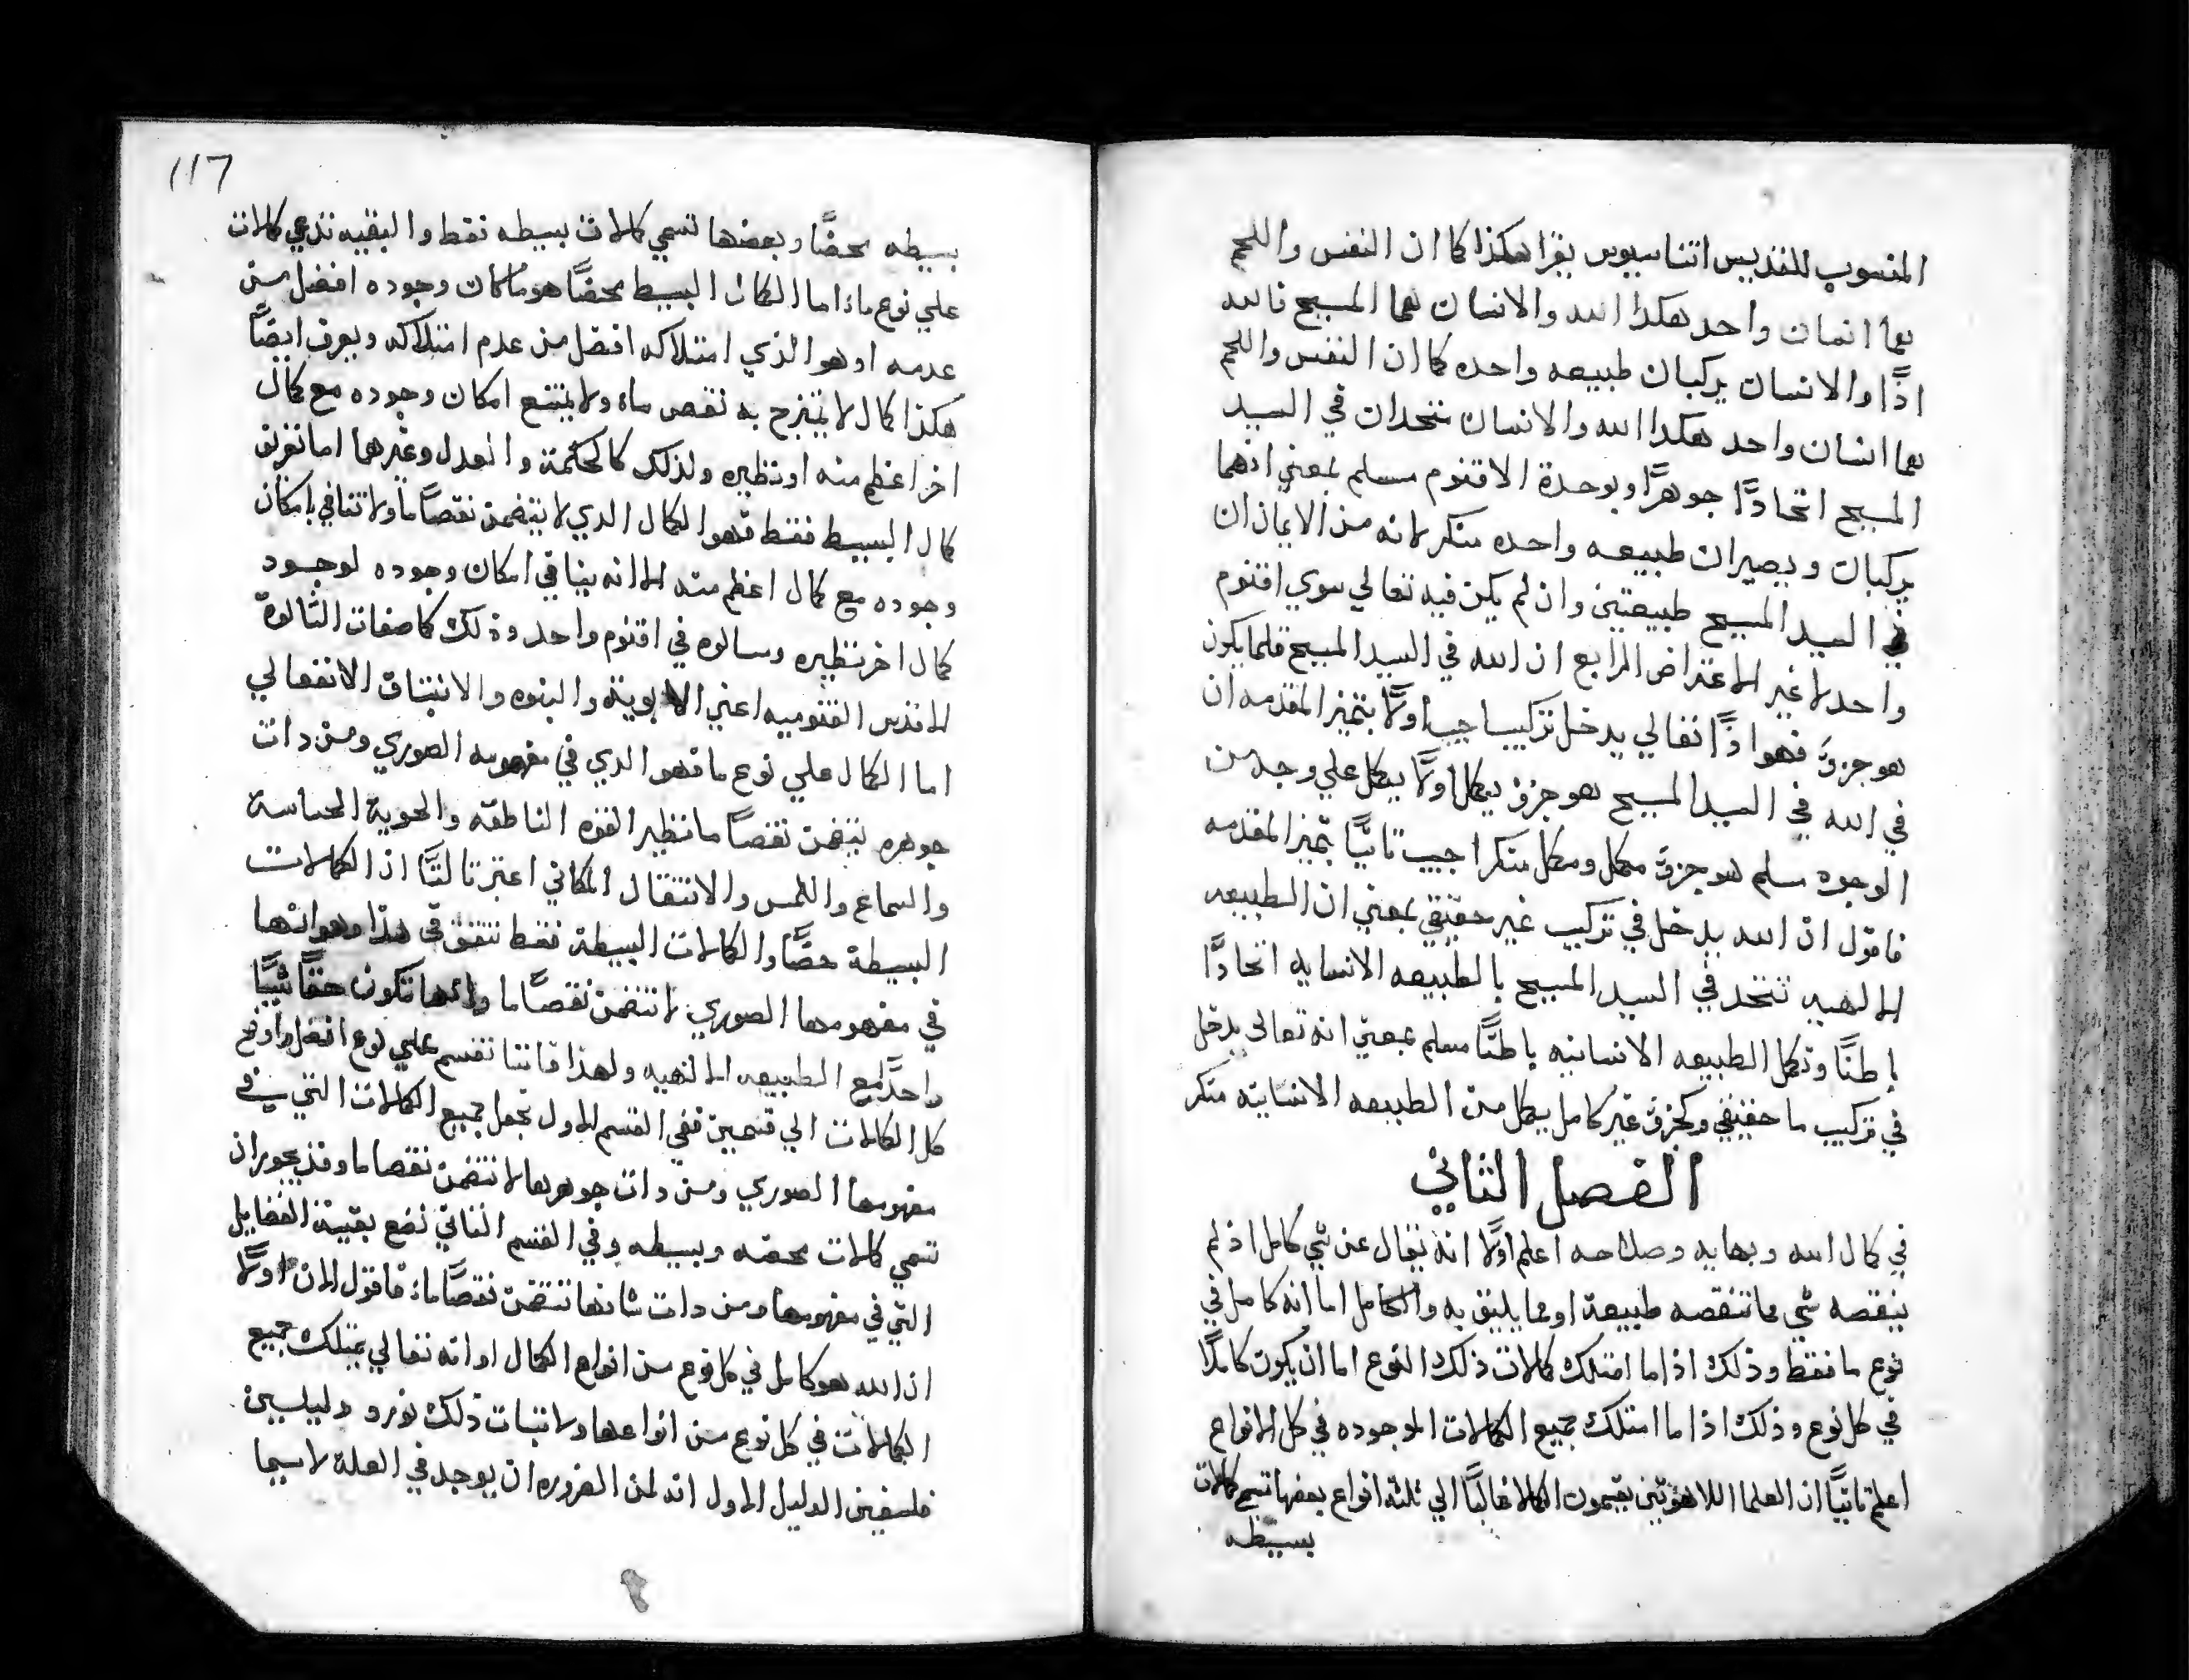 المنسوب للقديس اتناسيوس يقرا هكذا كما ان النفس واللحم
هما انسان واحد هكدا الله والانسان هما المسيح فالله
اذًا والانسان يركبان طبيعه واحده كما ان النفس واللحم
هما انسان واحد هكدا الله والانسان متحدان في السيد
المسيح اتحادًا جوهرًا وبوحدة الاقنوم مسلم بمعني انهما
يركبان ويصيران طبيعه واحده منكر لانه من الايمان ان
في السيد المسيح طبيعتين وان لم يكن فيه تعالي سوي اقنوم
واحد لا غير الاعتراض الرابع ان الله في السيد المسيح قلما يكون
هو جزوً فهو اذًا تعالي يدخل تركيبا اجيب اولًا بتميز المقدمه ان
في الله في السيد المسيح هو جزو يكمل اولًا يكمل علي وجه من
الوجوه مسلم هو جزوً مكمل ومكمل منكر اجيب تانيًا بتميز المقدمه
فاقول ان الله يدخل في تركيب غير حقيقي بمعني ان الطبيعه
الالهيه تتحد في السيد المسيح بالطبيعه الانسانيه اتحادًا
باطنًا وتكمل الطبيعه الانسانيه باطنًا مسلم بمعني انه تعالي يدخل
في تركيب ما حقيقي وكجزو غير كامل يكمل من الطبيعه الانسانيه منكر
الفصل الثاني
في كمال الله وبهايه وصلاحه اعلم اولًا انه يقال عن شي كامل اذ لم
ينقصه شي مما تنقصه طبيعة او مما يليق به والكامل اما انه كامل في
نوع ما فقط وذلك اذا ما امتلك كمالات ذلك النوع اما ان يكون كاملًا
في كل نوع وذلك اذا ما امتلك جميع الكمالات الموجوده في كل الانواع
اعلم تانيًا ان العلما اللاهوتين يقسمون الكمال غالبًا الي ثلثة انواع بعضها تسمي كمالات
بسيطه
117
بسيطه محضًا وبعضها تسمي كمالات بسيطه فقط والبقيه تدعي كمالات
علي نوع ما اما الكمال البسيط محضًا هو ما كان وجوده افضل من
عدمه او هو الذي امتلاكه افضل من عدم امتلاكه ويعرف ايضًا
هكذا كمال لا يمتزج به نقص ما ولا يمتنع امكان وجوده مع كمال
اخر اعظم منه او نظيره وذلك كالحكمة والعدل وغيرها اما تعريف
كمال البسيط فقط فهو الكمال الدي لا يتضمن نقصًا ما ولا تنافي بامكان
وجوده مع كمال اعظم منه الا انه ينافي امكان وجوده لوجود
كمال اخر نظيره وسالوه في اقنوم واحد وذلك كصفات الثالوث
الاقدس القنوميه اعني الابوية والبنوه والانبتاق الانفعالي
اما الكمال علي نوع ما فهو الدي في مفهومه الصوري ومن دات
جوهره يتضمن نقصًا ما نظير القوه الناطقه والحوية الحساسة
والسماع واللمس والانتقال المكاني اعتبر تالتًا اذ الكمالات
البسيطة حضًا والكمالات البسيطة فقط تتفق في هذا وهو انها
في مفهومها الصوري لا تتضمن نقصًا ما وانها تكون حقًا شيًا
واحدًا مع الطبيعه الالهيه ولهذا فاننا نقسم علي نوع افضل واوضح
كل الكمالات الي قسمين ففي القسم الاول نجعل جميع الكمالات التي في
مفهومها الصوري ومن دات جوهرها لا تتضمن نقصا ما وقد يجوز ان
تسمي كمالات محضه وبسيطه وفي القسم الثاني نضع بقية الفضايل
التي في مفهومها ومن دات شانها تتضمن نقصًا ما فاقول الان اولًا
ان الله هو كامل في كل نوع من انواع الكمال او انه تعالي يمتلك جميع
الكمالات في كل نوع من انواعها ولاتبات ذلك نورد دليلين
فلسفين الدليل الاول انه لمن الضروره ان يوجد في العلة لا سيما